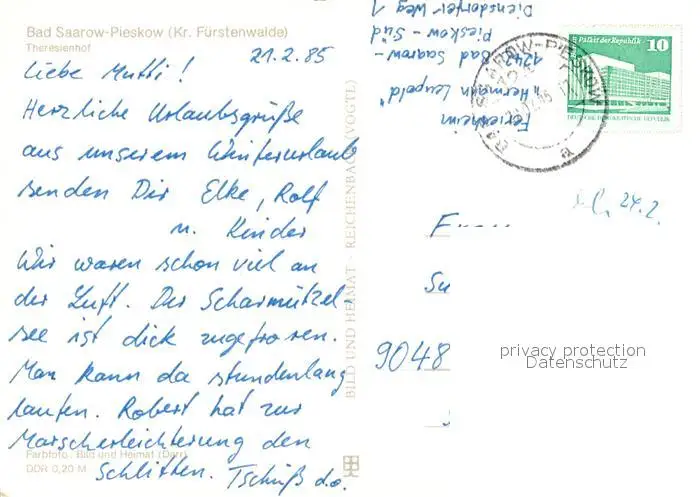 Bad Saarow-Pieskow (Kr. Fürstenwalde)
Theresienhof
21.2.85
Liebe Mutti!
Herzliche Urlaubsgrüße
aus unserem Winterurlaub
senden Dir Elke, Rolf
u. Kinder
Wir waren schon viel an
der Luft. Der Scharmützel-
see ist dick zugefroren.
Man kann da stundenlang
laufen. Robert hat zur
Marscherleichterung den
Schlitten. Tschüß d.o.
Farbfoto: Bild und Heimat (Darr)
DDR 0,20 M
BILD UND HEIMAT · REICHENBACH (VOGTL)
Ferienheim
"Hermann Leupold"
1242 Bad Saarow-
Pieskow-Süd
Diensdorfer Weg 1
Palast der Republik 10
DEUTSCHE DEMOKRATISCHE REPUBLIK
BAD SAAROW-PIESKOW
a
24.2.
9048
privacy protection
Datenschutz